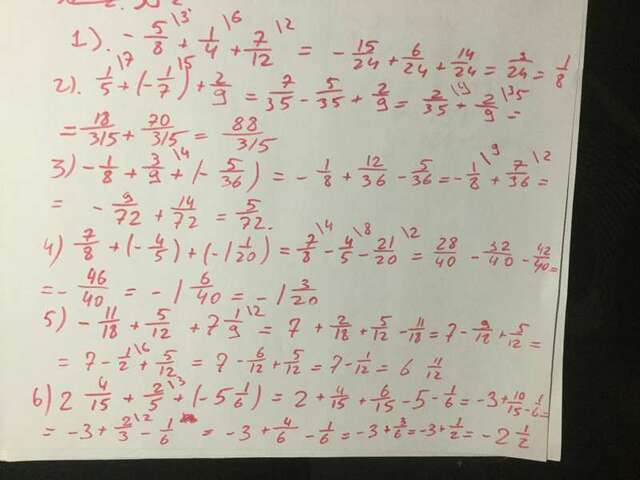 1). -5/8\3 + 1/4\6 + 7/12\2 = -15/24 + 6/24 + 14/24 = 3/24 = 1/8
2). 1/5\7 + (-1/7\5) + 2/9 = 7/35 - 5/35 + 2/9 = 2/35\9 + 2/9\35 =
= 18/315 + 70/315 = 88/315
3) -1/8 + 3/9\4 + (-5/36) = -1/8 + 12/36 - 5/36 = -1/8\9 + 7/36\2 =
= -9/72 + 14/72 = 5/72.
4) 7/8 + (-4/5) + (-1 1/20) = 7/8\4 - 4/5\8 - 21/20\2 = 28/40 - 32/40 - 42/40 =
= -46/40 = -1 6/40 = -1 3/20
5) -11/18 + 5/12 + 7 1/9\2 = 7 + 2/18 + 5/12 - 11/18 = 7 - 9/18 + 5/12 =
= 7 - 1/2\6 + 5/12 = 7 - 6/12 + 5/12 = 7 - 1/12 = 6 11/12
6) 2 4/15 + 2/5\3 + (-5 1/6) = 2 + 4/15 + 6/15 - 5 - 1/6 = -3 + 10/15 - 1/6 =
= -3 + 2/3\2 - 1/6 = -3 + 4/6 - 1/6 = -3 + 3/6 = -3 + 1/2 = -2 1/2